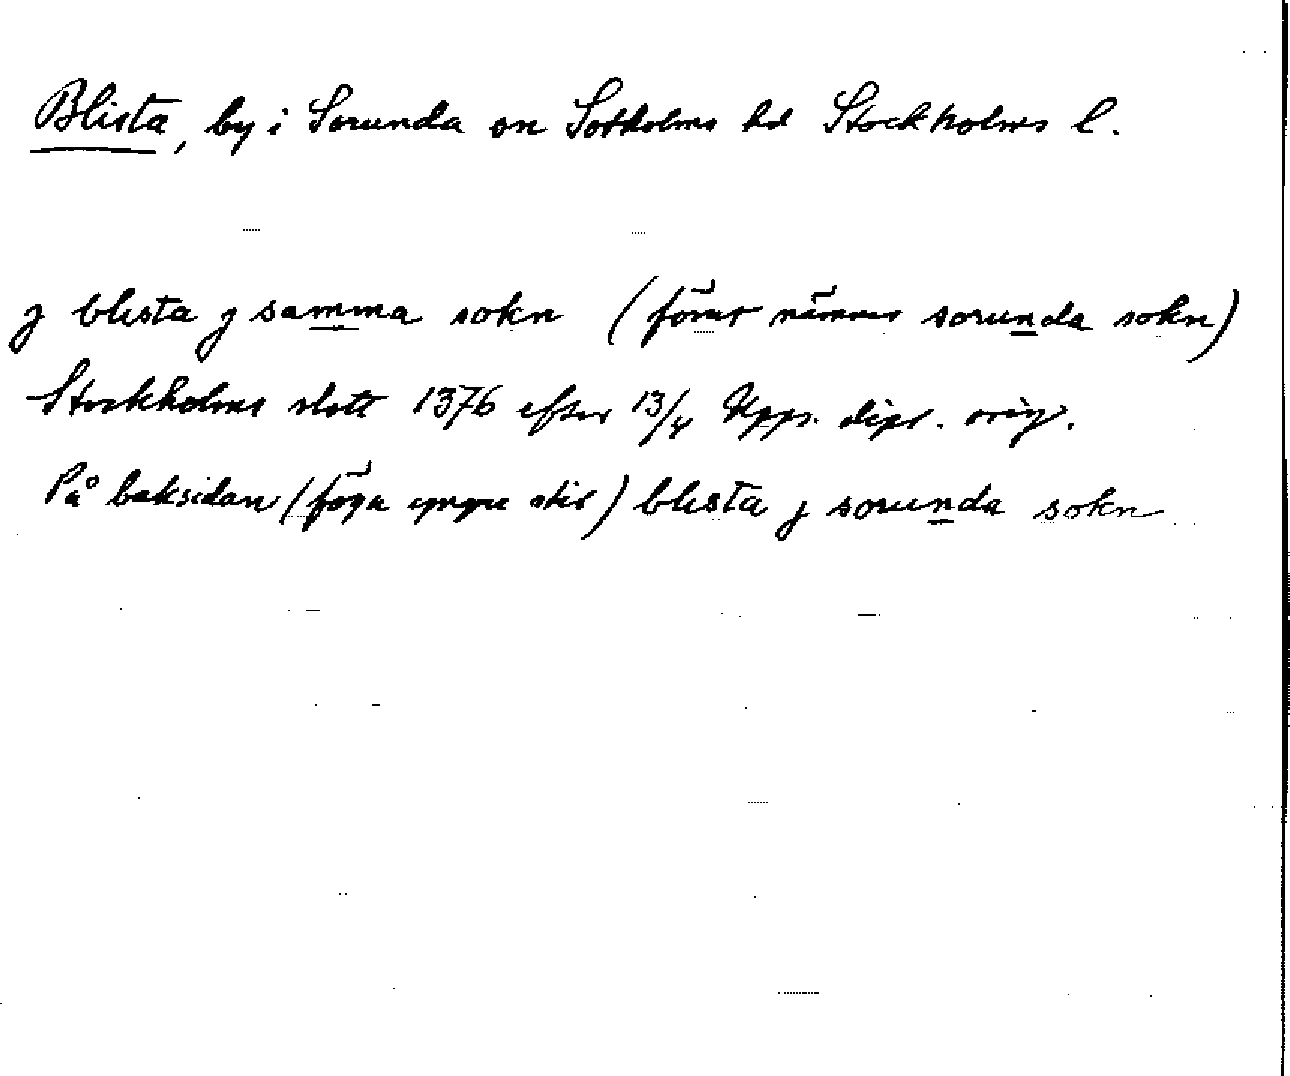 Blista, by i Sorunda sn Sotholms hd Stockholms l.
j blista j samma sokn (förut nämner sorunda sokn)
Stockholms slott 1376 efter 13/4 Upps. dipl. orig.
På baksidan (föga yngre stil) blista j sorunda sokn